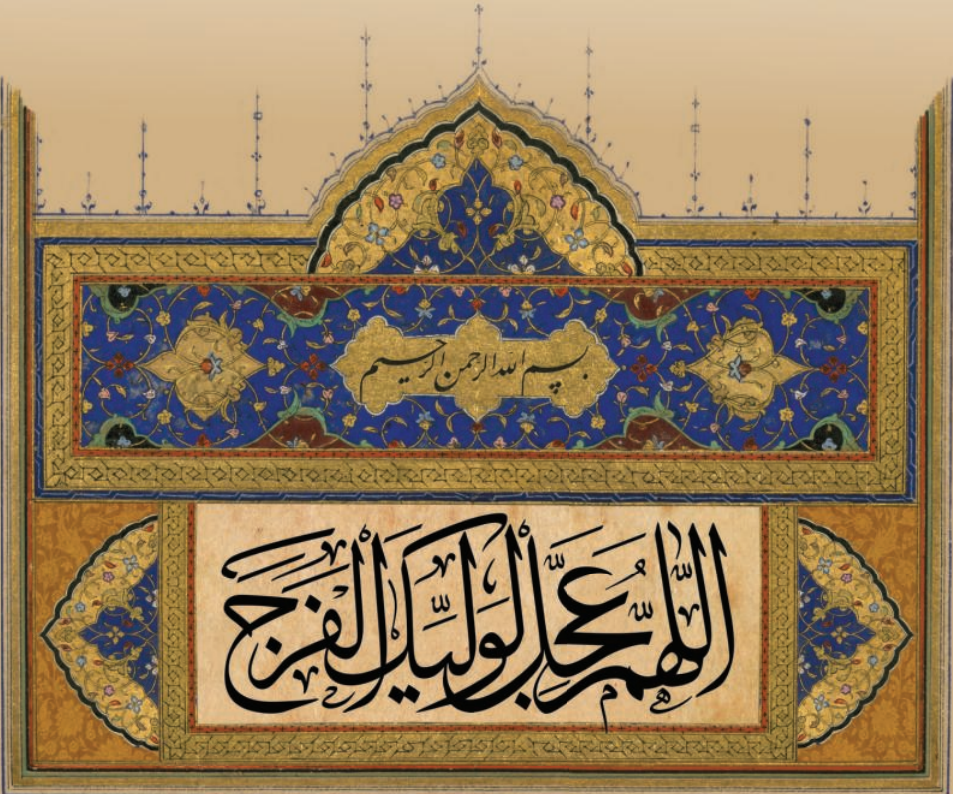 بسم الله الرحمن الرحیم
اللهم عجل لولیک الفرج